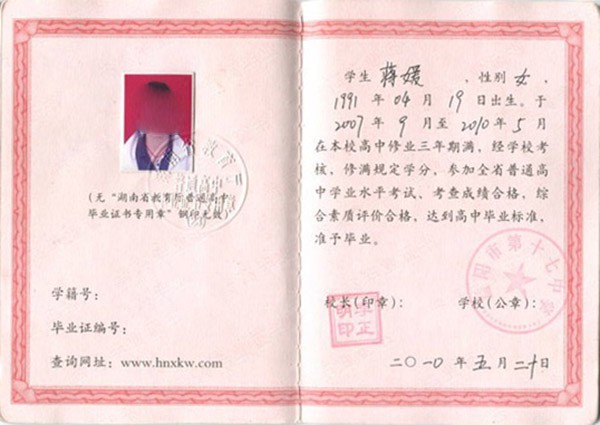 (无“湖南省教育厅普通高中
毕业证书专用章”钢印无效)
学籍号：
毕业证编号：
查询网址：www.hnxkw.com
学生 蒋媛 ，性别 女 ，
1991 年 04 月 19 日出生。于
2007 年 9 月至 2010 年 5 月
在本校高中修业三年期满，经学校考
核，修满规定学分，参加全省普通高
中学业水平考试、考查成绩合格，综
合素质评价合格，达到高中毕业标准，
准予毕业。
校长(印章)：
学校(公章)：
阳市第十七中学
李正
明印
二〇一〇 年 五 月 二十 日